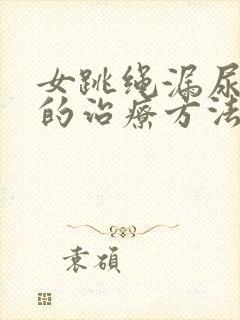 女跳绳漏尿
的治疗方法
袁硕